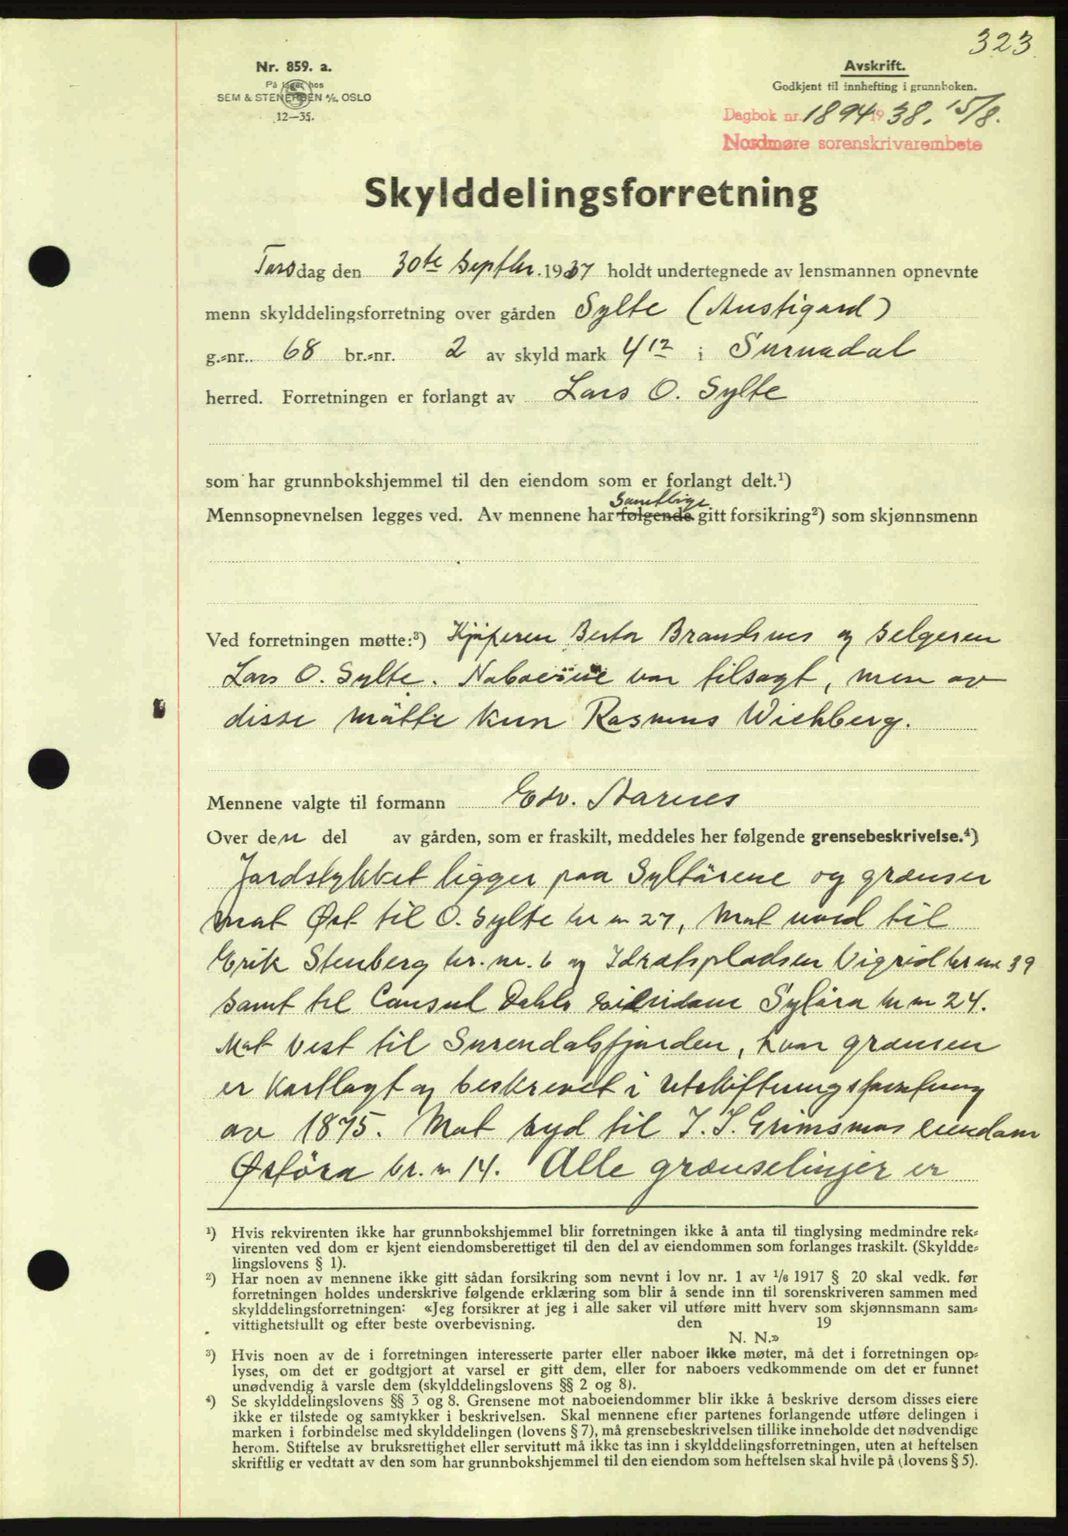 323
Nr. 859. a.
På lager hos
SEM & STENERSEN A/S. OSLO
12—35.
Avskrift.
Godkjent til innhefting i grunnboken.
Dagbok nr. 1894 1938. 15/8.
Nordmøre sorenskrivarembete
Skylddelingsforretning
Torsdag den 30te Septbr. 1937 holdt undertegnede av lensmannen opnevnte
menn skylddelingsforretning over gården Sylte (Austigard)
g.-nr. 68 br.-nr. 2 av skyld mark 4 12 i Surnadal
herred. Forretningen er forlangt av Lars O. Sylte
som har grunnbokshjemmel til den eiendom som er forlangt delt.¹)
Samtlige
Mennsopnevnelsen legges ved. Av mennene har følgende gitt forsikring²) som skjønnsmenn
Ved forretningen møtte:³) Kjøperen Brandsnes og selgeren
Lars O. Sylte. Naboerne var tilsagt, men av
disse møtte kun Rasmus Wichberg.
Mennene valgte til formann Edv. Aarnes
Over den del av gården, som er fraskilt, meddeles her følgende grensebeskrivelse.⁴)
Jordstykket ligger paa Syltørene og grænser
mot Øst til O. Sylte br n 27, Mot nord til
Erik Stenberg br. nr. 6 og Idrætspladsen Vigrid br nr 39
samt til Consul Dahls eiendom Syløra br nr 24.
Mot Vest til Surendalsfjorden, hvor grænsen
er kartlagt og beskrevet i utskiftningsforretning
av 1875. Mot syd til J. S. Grimsmos eiendom
Østøra br. n 14. Alle grænselinjer er
¹) Hvis rekvirenten ikke har grunnbokshjemmel blir forretningen ikke å anta til tinglysing medmindre rek-
virenten ved dom er kjent eiendomsberettiget til den del av eiendommen som forlanges fraskilt. (Skyldde-
lingslovens § 1).
²) Har noen av mennene ikke gitt sådan forsikring som nevnt i lov nr. 1 av ¹/₆ 1917 § 20 skal vedk. før
forretningen holdes underskrive følgende erklæring som blir å sende inn til sorenskriveren sammen med
skylddelingsforretningen: «Jeg forsikrer at jeg i alle saker vil utføre mitt hverv som skjønnsmann sam-
vittighetsfullt og efter beste overbevisning. den 19
N. N.»
³) Hvis noen av de i forretningen interesserte parter eller naboer ikke møter, må det i forretningen op-
lyses, om det er godtgjort at varsel er gitt dem, eller for naboers vedkommende om det er funnet
unødvendig å varsle dem (skylddelingslovens §§ 2 og 8).
⁴) Se skylddelingslovens §§ 3 og 8. Grensene mot naboeiendommer blir ikke å beskrive dersom disses eiere
ikke er tilstede og samtykker i beskrivelsen. Skal mennene efter partenes forlangende utføre delingen i
marken i forbindelse med skylddelingen (lovens § 7), må grensebeskrivelsen tillike inneholde det nødvendige
herom. Stiftelse av bruksrettighet eller servitutt må ikke tas inn i skylddelingsforretningen, uten at heftelsen
skriftlig er vedtatt av den som har grunnbokshjemmel til den eiendom som heftelsen skal hvile på (lovens § 5).